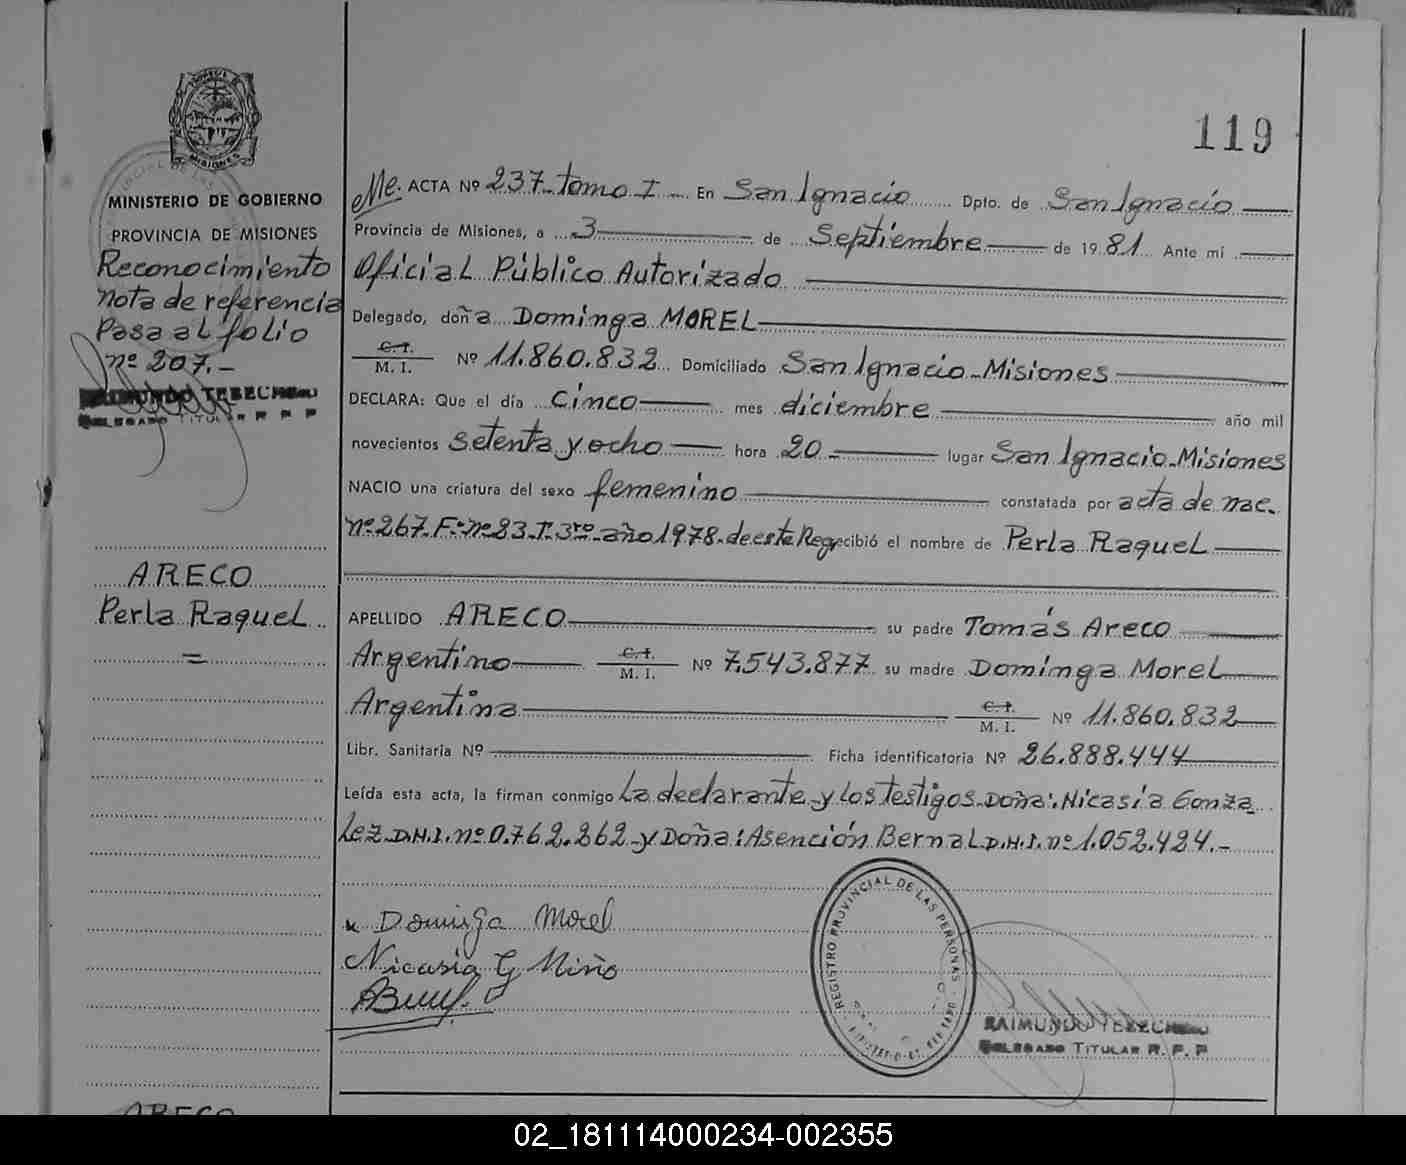 119
MISIONES
MINISTERIO DE GOBIERNO
PROVINCIA DE MISIONES
Reconocimiento
nota de referencia
Pasa al folio
nº 207.-
RAIMUNDO
DELEGADO TITULAR R. P. P
ARECO
Perla Raquel
=
Me. ACTA Nº 237 tomo I En San Ignacio Dpto. de San Ignacio
Provincia de Misiones, a 3 de Septiembre de 1981. Ante mi
Oficial Público Autorizado
Delegado, doña Dominga MOREL
C.I.
M. I. Nº 11.860.832 Domiciliado San Ignacio - Misiones
DECLARA: Que el día cinco mes diciembre año mil
novecientos setenta y ocho hora 20 - lugar San Ignacio - Misiones
NACIO una criatura del sexo femenino constatada por acta de nac.
nº 267. Fº nº 23. T. 3ro. año 1978. de este Reg. recibió el nombre de Perla Raquel
APELLIDO ARECO su padre Tomás Areco
Argentino C.I. M. I. Nº 7.543.877 su madre Dominga Morel
Argentina C.I. M. I. Nº 11.860.832
Libr. Sanitaria Nº Ficha identificatoria Nº 26.888.444
Leída esta acta, la firman conmigo La declarante y los testigos. Doña: Nicasia Gonza
lez D.N.I. nº 0.762.262 - y Doña: Asención Bernal D.N.I. nº 1.052.424.-
x Dominga Morel
Nicasia G Miño
REGISTRO PROVINCIAL DE LAS PERSONAS
RAIMUNDO
DELEGADO TITULAR R. P. P
ARECO
02_181114000234-002355